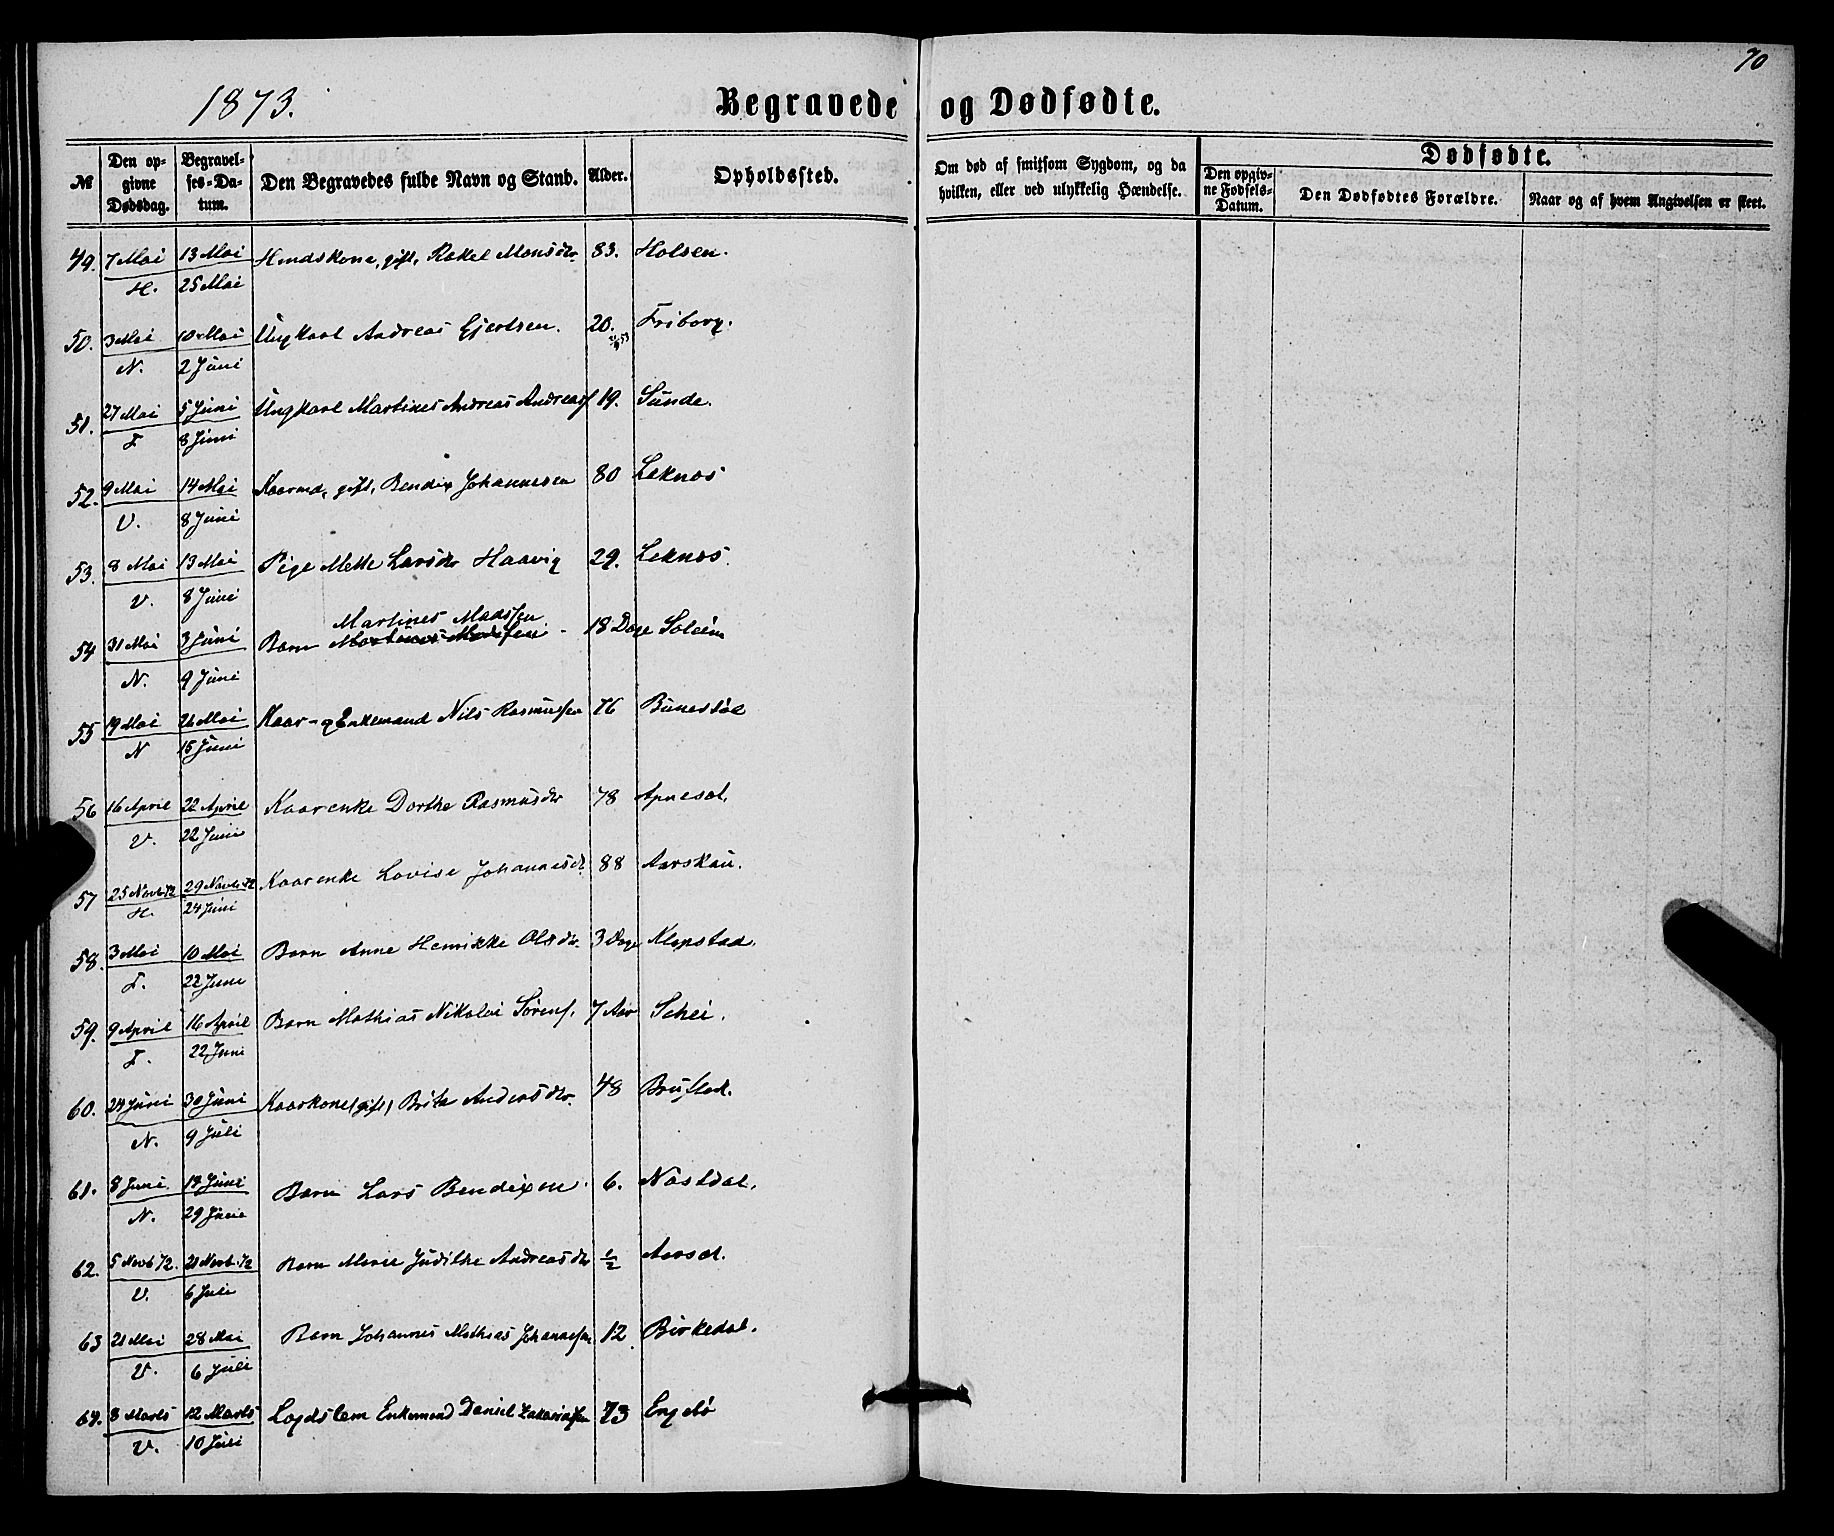 70
1873.
Begravede og Dødfødte.
№
Den opgivne Dødsdag.
Begravelses-Datum.
Den Begravedes fulde Navn og Stand.
Alder.
Opholdssted.
Om død af smitsom Sygdom, og da hvilken, eller ved ulykkelig Hændelse.
Dødfødte.
Den opgivne Fødsels-Datum.
Den Dødfødtes Forældre.
Naar og af hvem Angivelsen er skeet.
49. 7 Mai 13 Mai Huuskone, gift, Rakel Monsdr. 83. Holsen.
H. 25 Mai
50. 3 Mai 10 Mai Ungkarl Andreas Ejertsen. 20. Friborg.
N. 2 Juni
51. 27 Mai 5 Juni Ungkarl Martines Andreas Andreass 19. Sunde.
F 8 Juni
52. 9 Mai 14 Mai Kaarmd, gift, Bendix Johannesen 80 Leknes
V. 8 Juni
53. 8 Mai 13 Mai Pige Mette Larsdr Haavig 29. Leknes.
V. 8 Juni
Martines Madssen
54 31 Mai 3 Juni Barn 18 Dage Soleim
N. 9 Juni
55 19 Mai 26 Mai Kaar- og Enkemand Nils Rasmussen 76 Bunestøl
N 15 Juni
56 16 April 22 April Kaarenke Dorthe Rasmusdr 78 Apnesæt.
V. 22 Juni
57 25 Novb 72 29 Novb 72 Kaarenke Lovise Johannesd. 88 Aarskau.
H. 24 Juni
58. 3 Mai 10 Mai Barn Anne Henrikke Olsdr. 3 Dage Klopstad.
F. 22 Juni
59. 9 April 16 April Barn Mathias Nikolai Sørens. 7 Aar Schei.
F. 22 Juni
60. 24 Juni 30 Juni Kaarkone (gift) Brita Andersdr. 48 Brustad.
N. 9 Juli
61. 8 Juni 14 Juni Barn Lars Bendixen. 6. Nastdal.
N. 29 Juni
62. 5 Novb 72. 21 Novb. 72 Barn Marie Judithe Andreasdr ½ Aarsæt.
V. 6 Juli
63 21 Mai 28 Mai Barn Johannes Mathias Johannessen 12 Birkedal.
V. 6 Juli
64. 8 Marts 12 Marts Lægdslem Enkemand Daniel Zakariassen 73 Engebø
V. 10 Juli